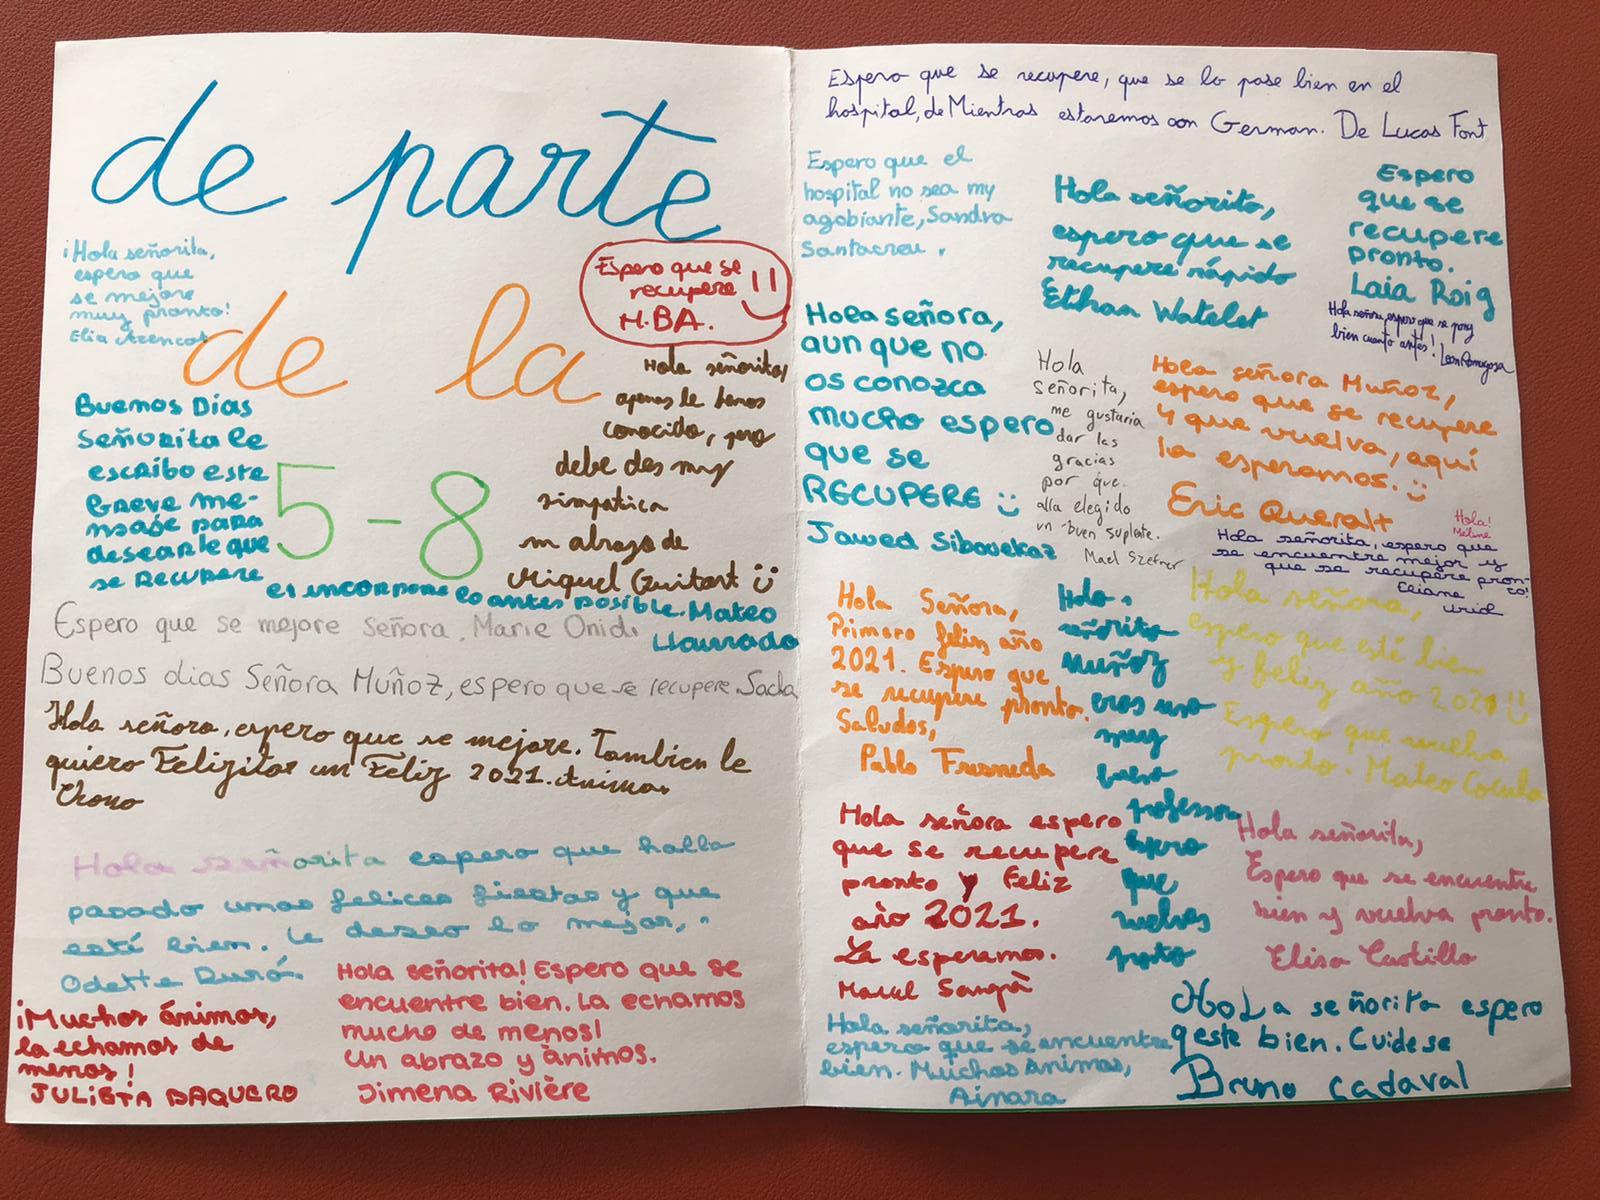 de parte
¡Hola señorita,
espero que
se mejore
muy pronto!
Elia
Espero que se
recupere
M.BA.
de la
Hola señorita,
apenas le hemos
conocido, pero
debe des muy
simpatica
un abrazo de
Miquel Guitart
Buenos Dias
Señorita le
escribo este
breve me-
nsaje para
desearle que
se Recupere
5-8
el incorpore lo antes posible. Mateo
Llaurado
Espero que se mejore señora, Marie Onidi
Buenos dias Señora Muñoz, espero que se recupere Sacha
Hola señora, espero que se mejore. Tambien le
quiero Felizitar un Feliz 2021. Anima.
Hola señorita espero que halla
pasado unas felices fiestas y que
está bien. Le deseo lo mejor,
Odette Durá
¡Muchos ánimos,
la echamos de
menos!
JULIETA BAQUERO
Hola señorita! Espero que se
encuentre bien. La echamos
mucho de menos!
Un abrazo y ànimos.
Jimena Rivière
Espero que se recupere, que se lo pase bien en el
hospital, de Mientras estaremos con German. De Lucas Font
Espero que el
hospital no sea my
agobiante, Sandra
Santacreu.
Hola señorita,
espero que se
recupere rápido
Ethan Watelet
Espero
que se
recupere
pronto.
Laia Roig
Hola señora, espero que se pong
bien cuanto antes! Leon Romagosa
Hola señora,
aun que no
os conozca
mucho espero
que se
RECUPERE
Jawed Sibouekaz
Hola
señorita,
me gustaria
dar las
gracias
por que
alla elegido
un buen suplente.
Mael Szefner
Hola señora Muñoz,
espero que se recupere
y que vuelva, aquí
la esperamos.
Eric Queralt
Hola!
Méline
Hola señorita, espero que
se encuentre mejor y
que se recupere pron-
to!
Eliane
Uriol
Hola Señora,
Primero feliz año
2021. Espero que
se recupere pronto.
Saludos,
Pablo Fresneda
Hola
señorita
MUÑOZ
eras una
muy
buena
professora
espero
que
vuelvas
proto
Hola señora,
espero que esté bien
y feliz año 2021
Espero que vuelva
pronto. Mateo
Hola señora espero
que se recupere
pronto y Feliz
año 2021.
La esperamos.
Marcel Sangrà
Hola señorita,
Espero que se encuentre
bien y vuelva pronto.
Elisa Castillo
Hola señorita,
espero que se encuentre
bien. Muchos animos,
Ainara
HoLa señorita espero
q este bien. Cuidese
Bruno Cadaval